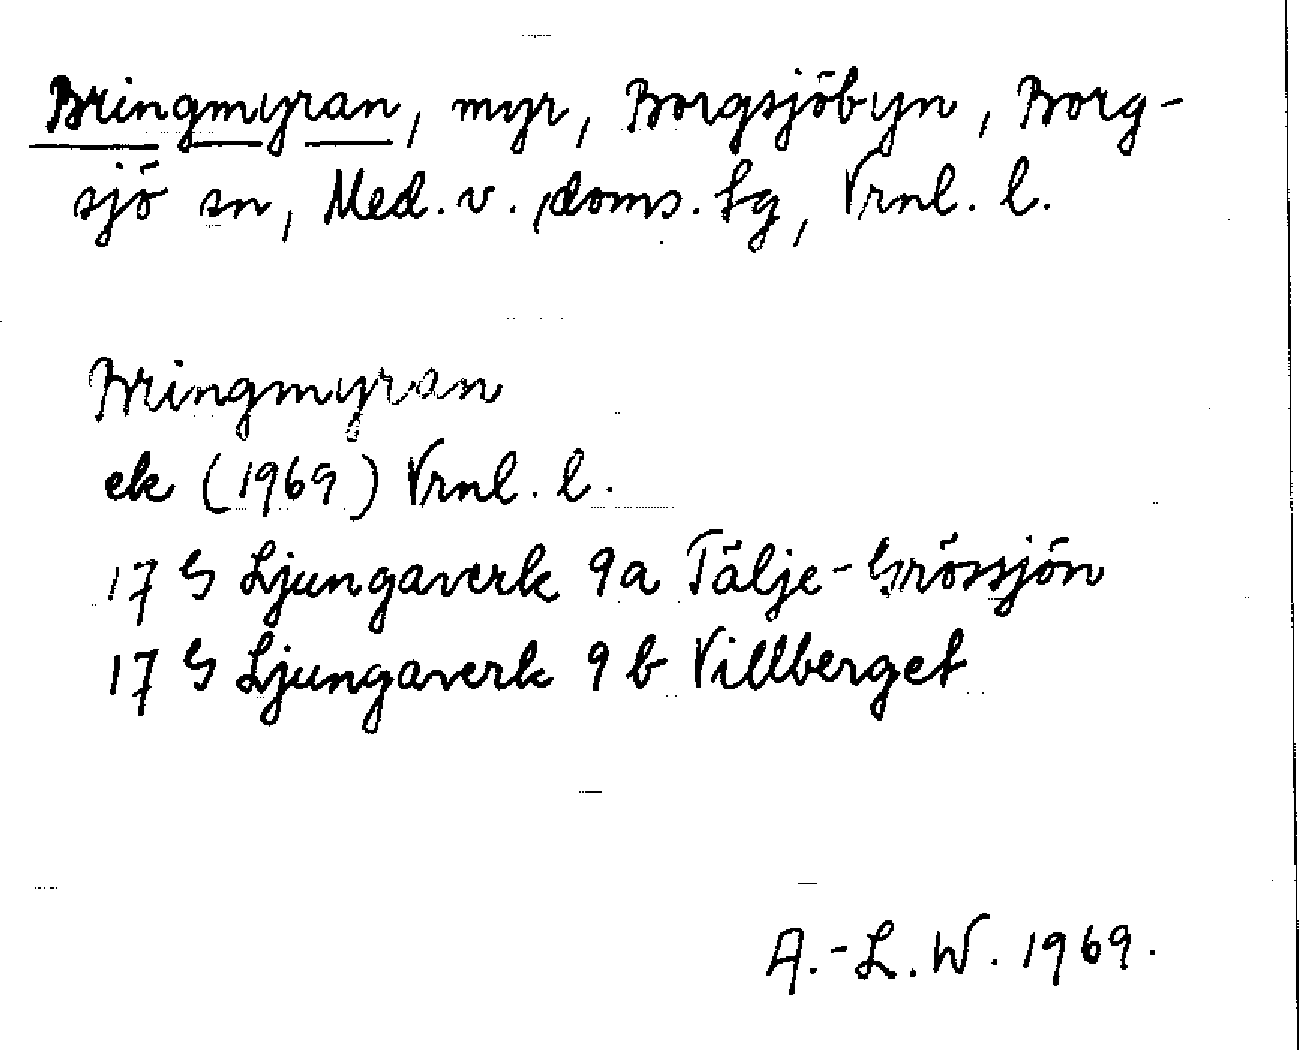 Bringmyran, myr, Borgsjöbyn, Borg-
sjö sn, Med. v. doms. lg, Vrnl. l.
Bringmyran
ek (1969) Vrnl. l.
17 G Ljungaverk 9a Tälje-Grössjön
17 G Ljungaverk 9b Villberget
A.-L. W. 1969.